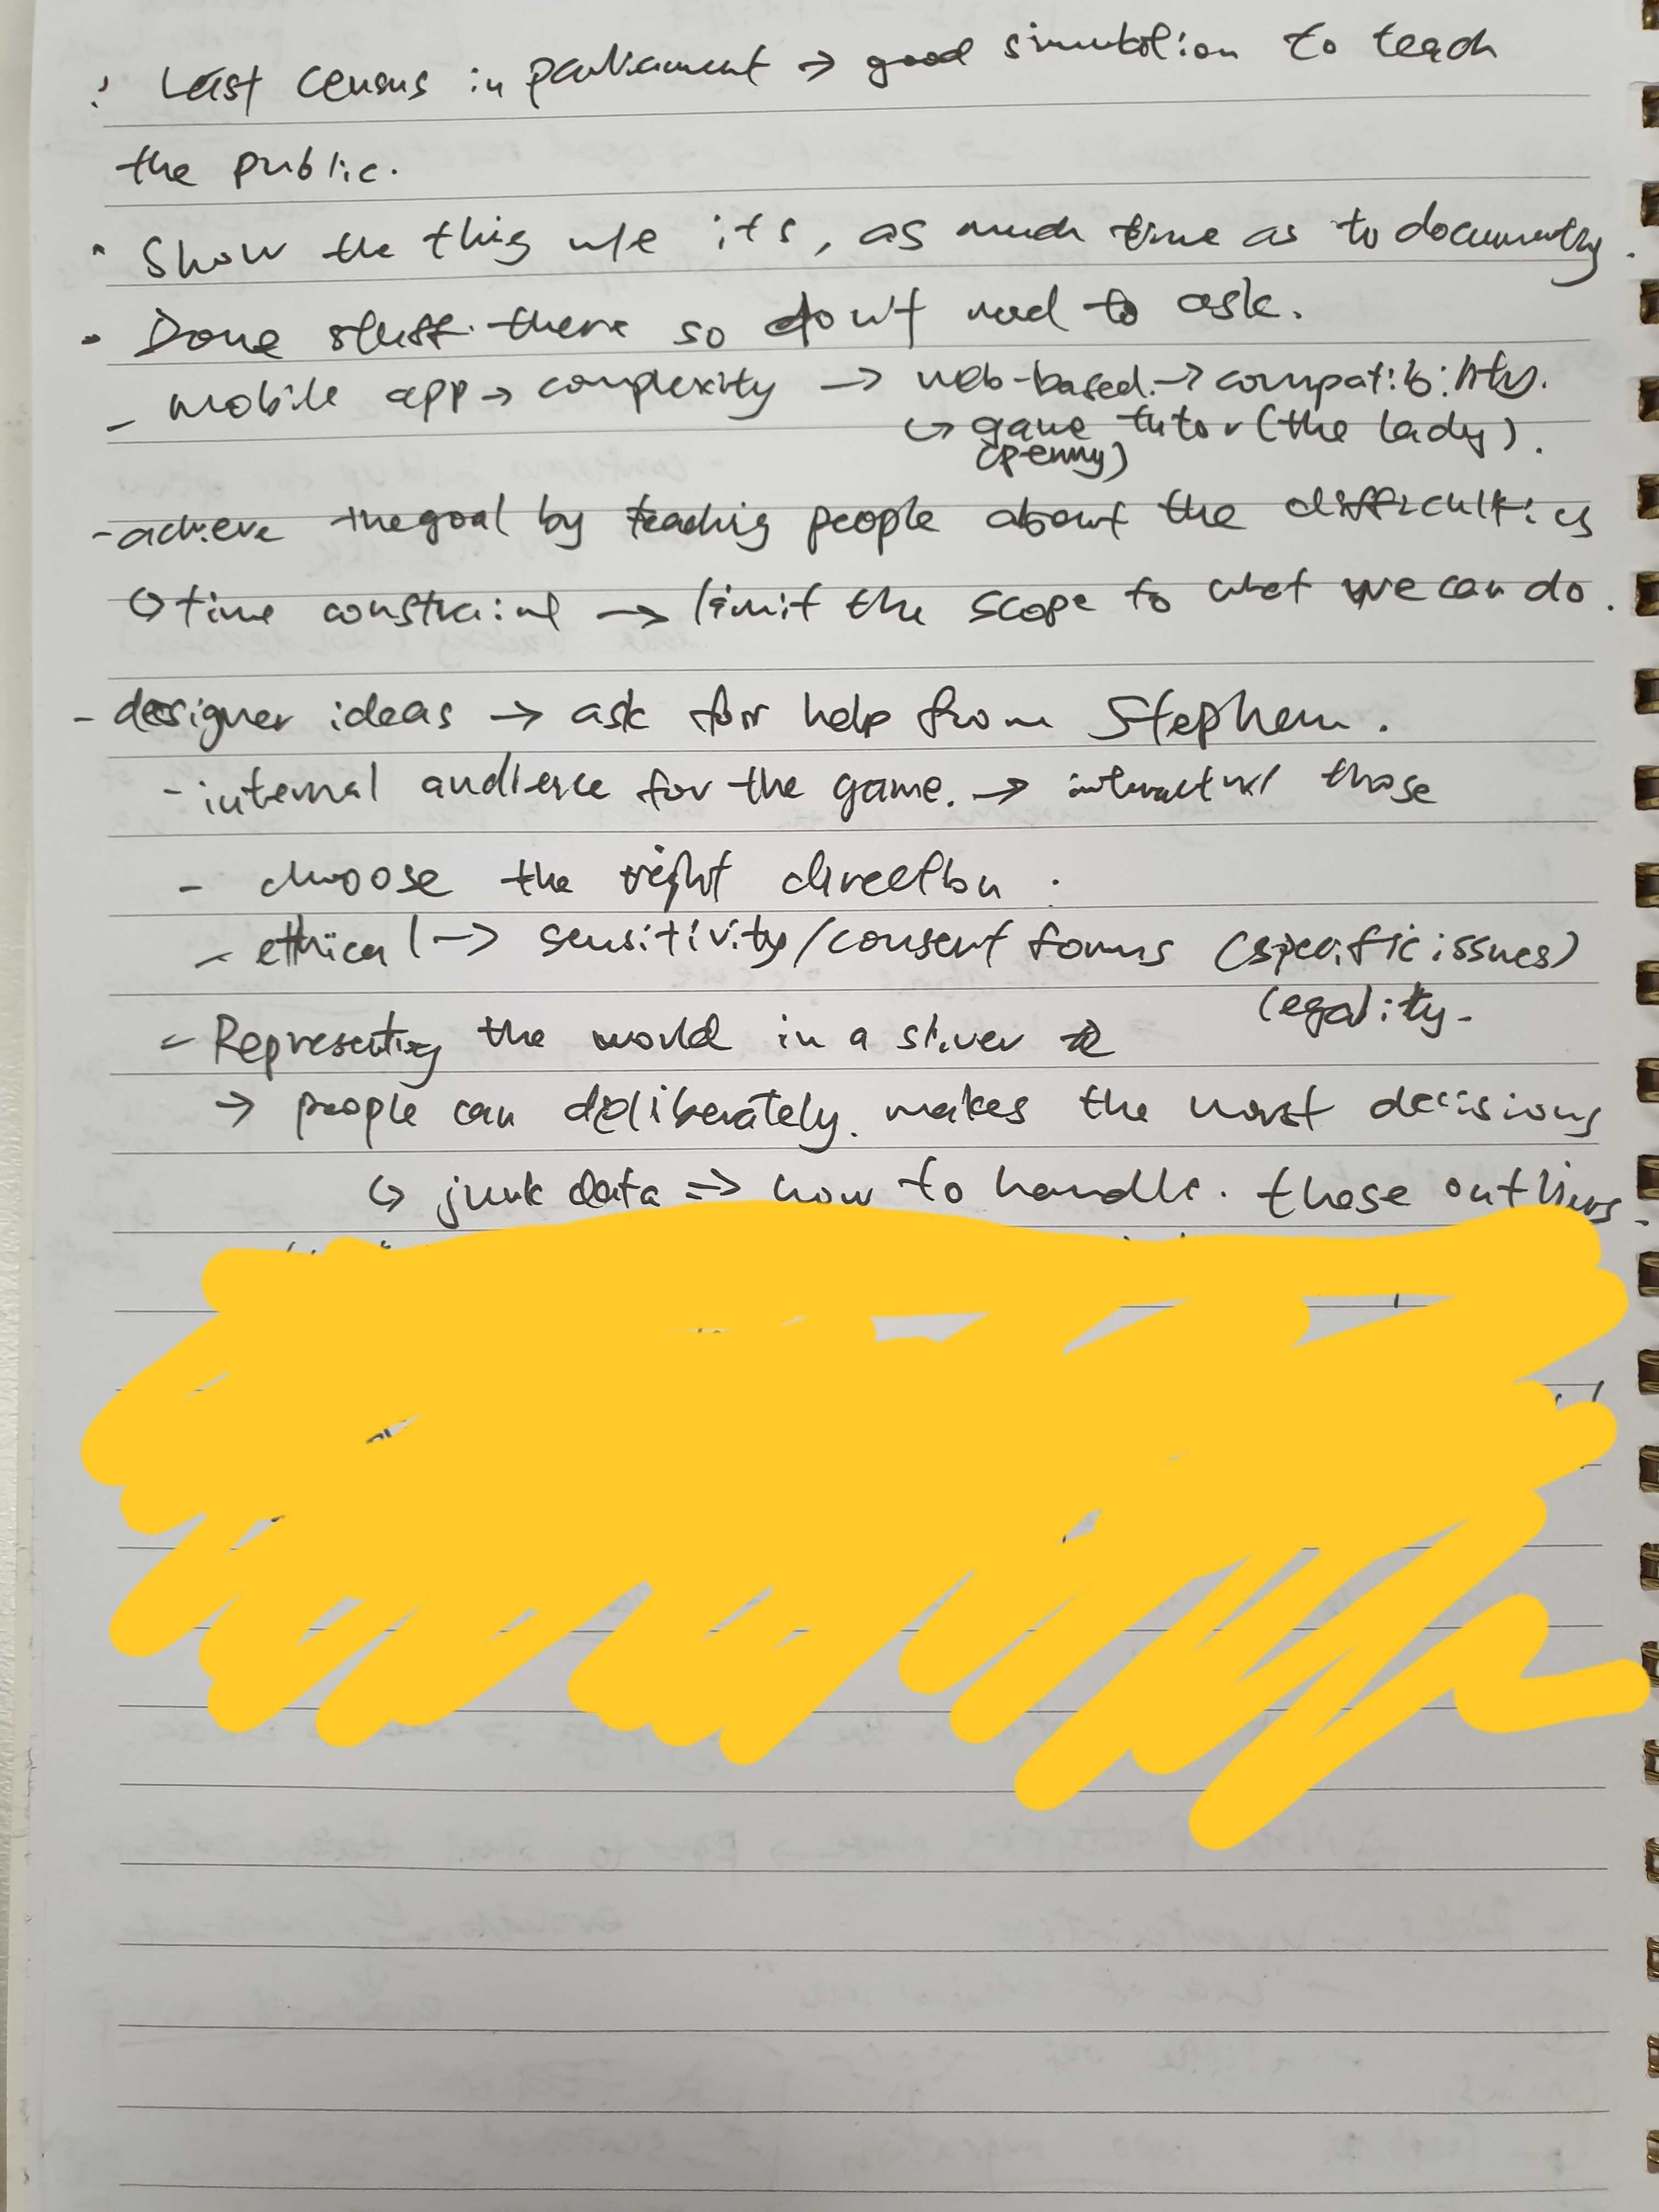 : Last census in parliament → good simulation to teach
the public.
• Show the thing w/e it's, as much time as to documenting.
• Done stuff there so don't need to ask.
- mobile app → complexity → web-based → compatibility.
↪ game tutor (the lady).
(penny)
- achieve the goal by teaching people about the difficulties
↪ time constraint → limit the scope to what we can do.
- designer ideas → ask for help from Stephen.
- internal audience for the game. → interact w/ those
- choose the right direction.
- ethical → sensitivity/consent forms (specific issues)
legality.
- Representing the world in a sliver
→ people can deliberately makes the worst decisions
↪ junk data => how to handle those outliers.